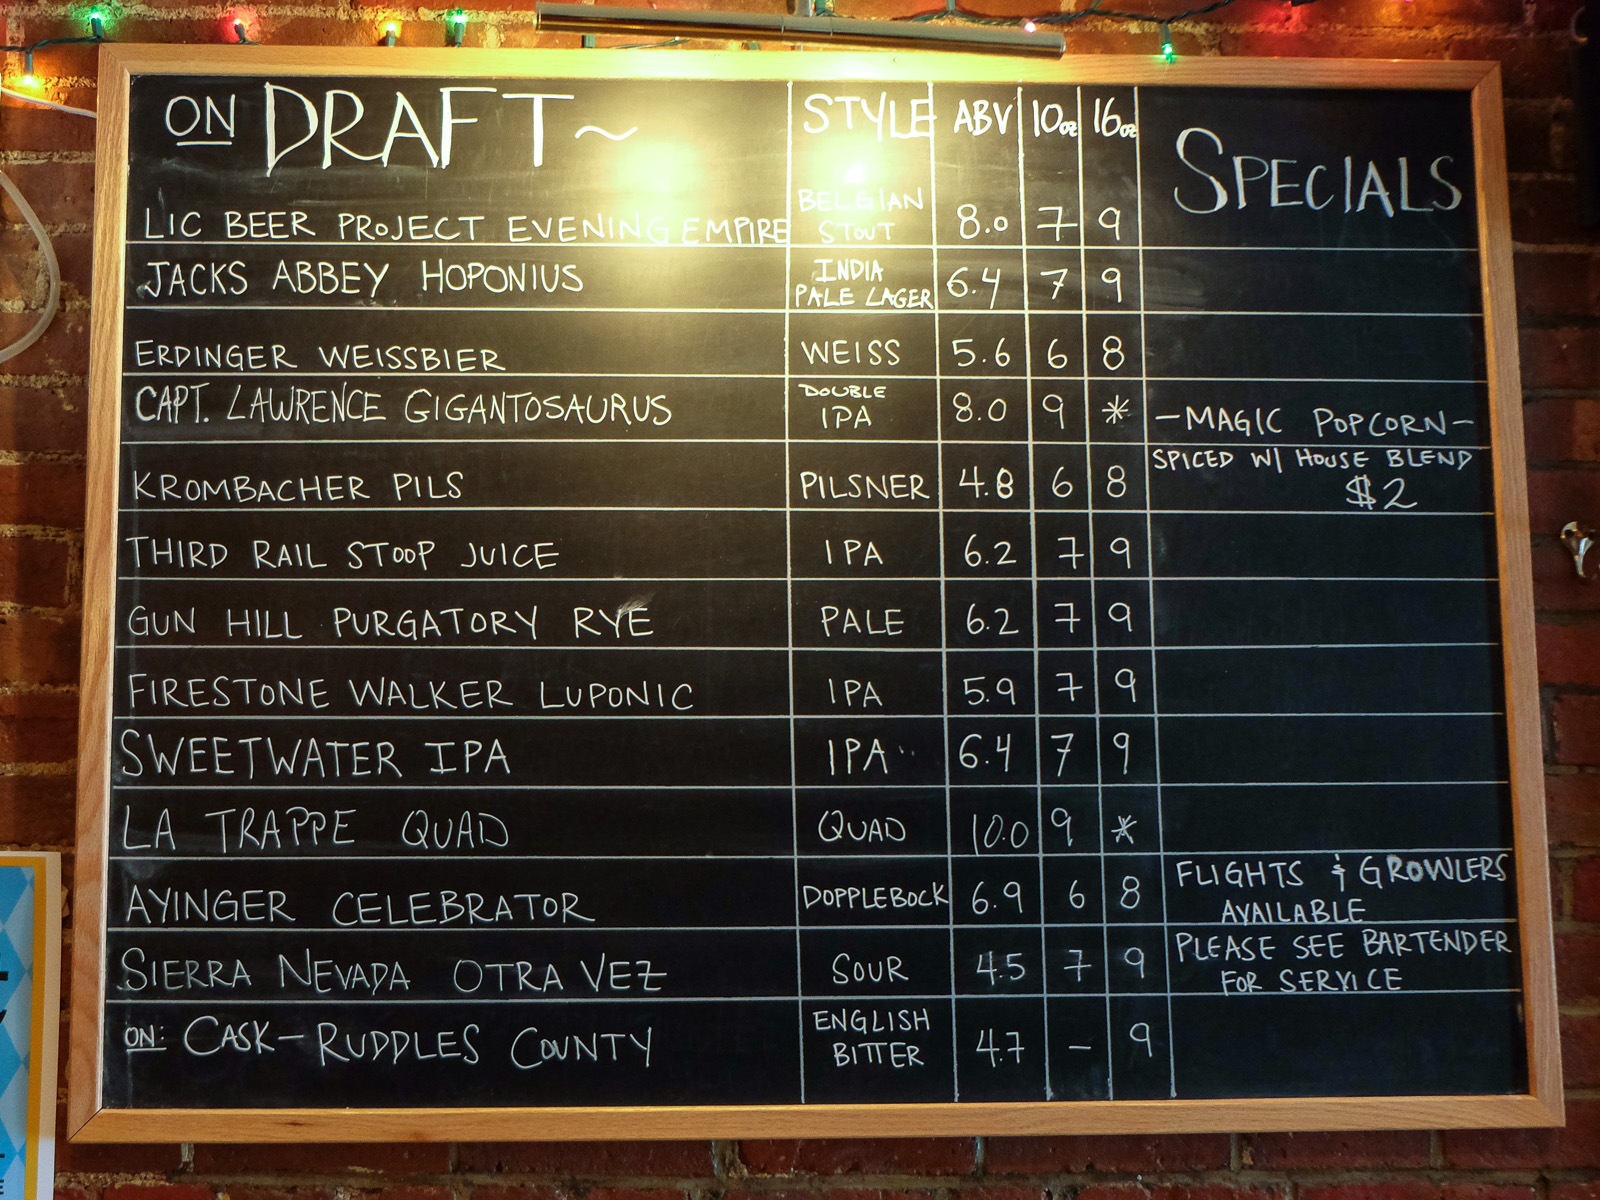 ON DRAFT~ STYLE ABV 10oz 16oz SPECIALS
LIC BEER PROJECT EVENING EMPIRE BELGIAN STOUT 8.0 7 9
JACKS ABBEY HOPONIUS INDIA PALE LAGER 6.4 7 9
ERDINGER WEISSBIER WEISS 5.6 6 8
CAPT. LAWRENCE GIGANTOSAURUS DOUBLE IPA 8.0 9 *
KROMBACHER PILS PILSNER 4.8 6 8
THIRD RAIL STOOP JUICE IPA 6.2 7 9
GUN HILL PURGATORY RYE PALE 6.2 7 9
FIRESTONE WALKER LUPONIC IPA 5.9 7 9
SWEETWATER IPA IPA 6.4 7 9
LA TRAPPE QUAD QUAD 10.0 9 *
AYINGER CELEBRATOR DOPPLEBOCK 6.9 6 8
SIERRA NEVADA OTRA VEZ SOUR 4.5 7 9
ON: CASK-RUDDLES COUNTY ENGLISH BITTER 4.7 - 9
-MAGIC POPCORN-
SPICED W/ HOUSE BLEND
$2
FLIGHTS & GROWLERS
AVAILABLE
PLEASE SEE BARTENDER
FOR SERVICE